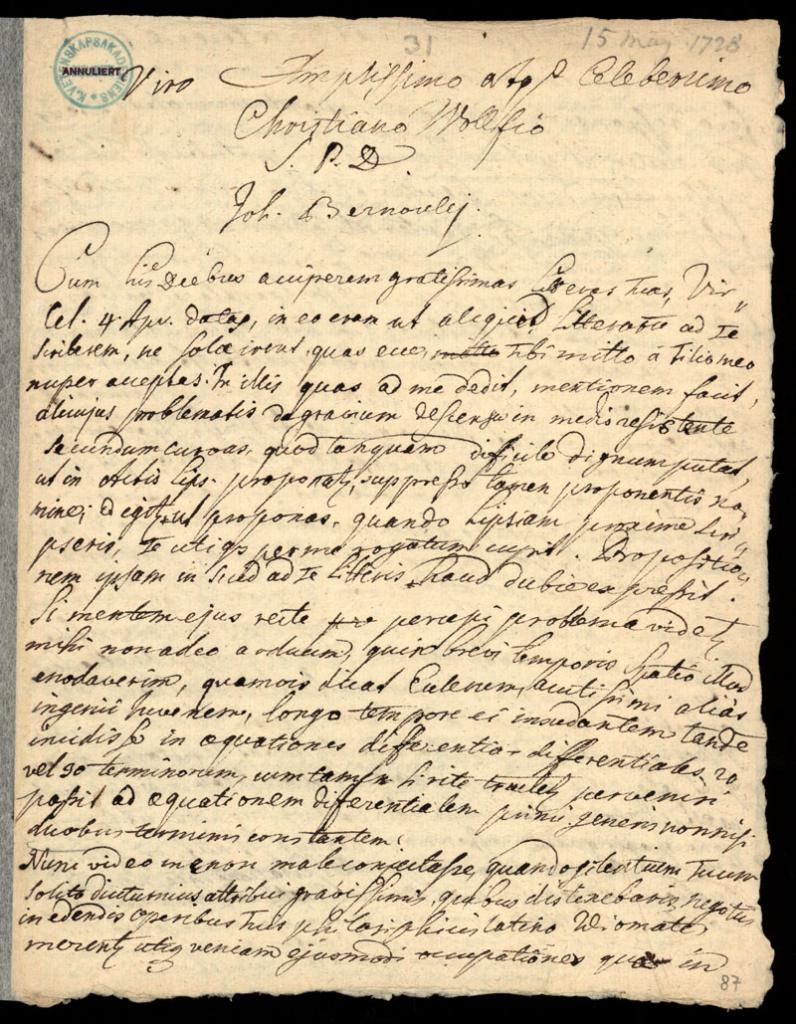 31
15 may 1728
K. VETENSKAPSAKADEMIENS
ANNULIERT
Viro Amplissimo atqꝫ Celeberrimo
Christiano Wolfio
S. P. D
Joh. Bernoullj.
Cum his diebus acciperem gratissimas Litteras tuas, Vir
Cel. 4. Apr. datas, in eo eram ut aliquid Litterarum ad Te
scriberem, ne solæ irent, quas ecce tibi mitto à Filio meo
nuper acceptas. In illis quas ad me dedit, mentionem facit,
alicujus problematis de gravium descensu in medio resistente
secundum curvas, quod tanquam difficile dignum putat,
ut in Actis Lips. proponatꝫ, suppresso tamen proponentis no„
mine; id igitur ut proponas, quando Lipsiam proxime scri„
pseris, Te utiqꝫ per me rogatum cupit. Propositio„
nem ipsam in suis ad Te Litteris haud dubie expressit.
Si mentem ejus recte percepi problema videtꝫ
mihi non adeo arduum, quin brevi temporis spatio illud
enodaverim, quamvis dicat Eulerum, acutissimi alias
ingenii Juvenem, longo tempore ei insudantem tandē
incidisse in æquationes differentio-differentiales 20
vel 30 terminorum, cum tamen si rite tractetꝫ perveniri
possit ad æquationem differentialem primi generis nonnisi
duobus terminis constantem.
Nunc video me non male conjectasse, quando silentium Tuum
solito diuturnius attribui gravissimis, quibus distinebaris, negotiis
in edendis operibus Tuis philosophicis latino Idiomate,
merentꝫ utiqꝫ veniam ejusmodi occupationes quæ in
87